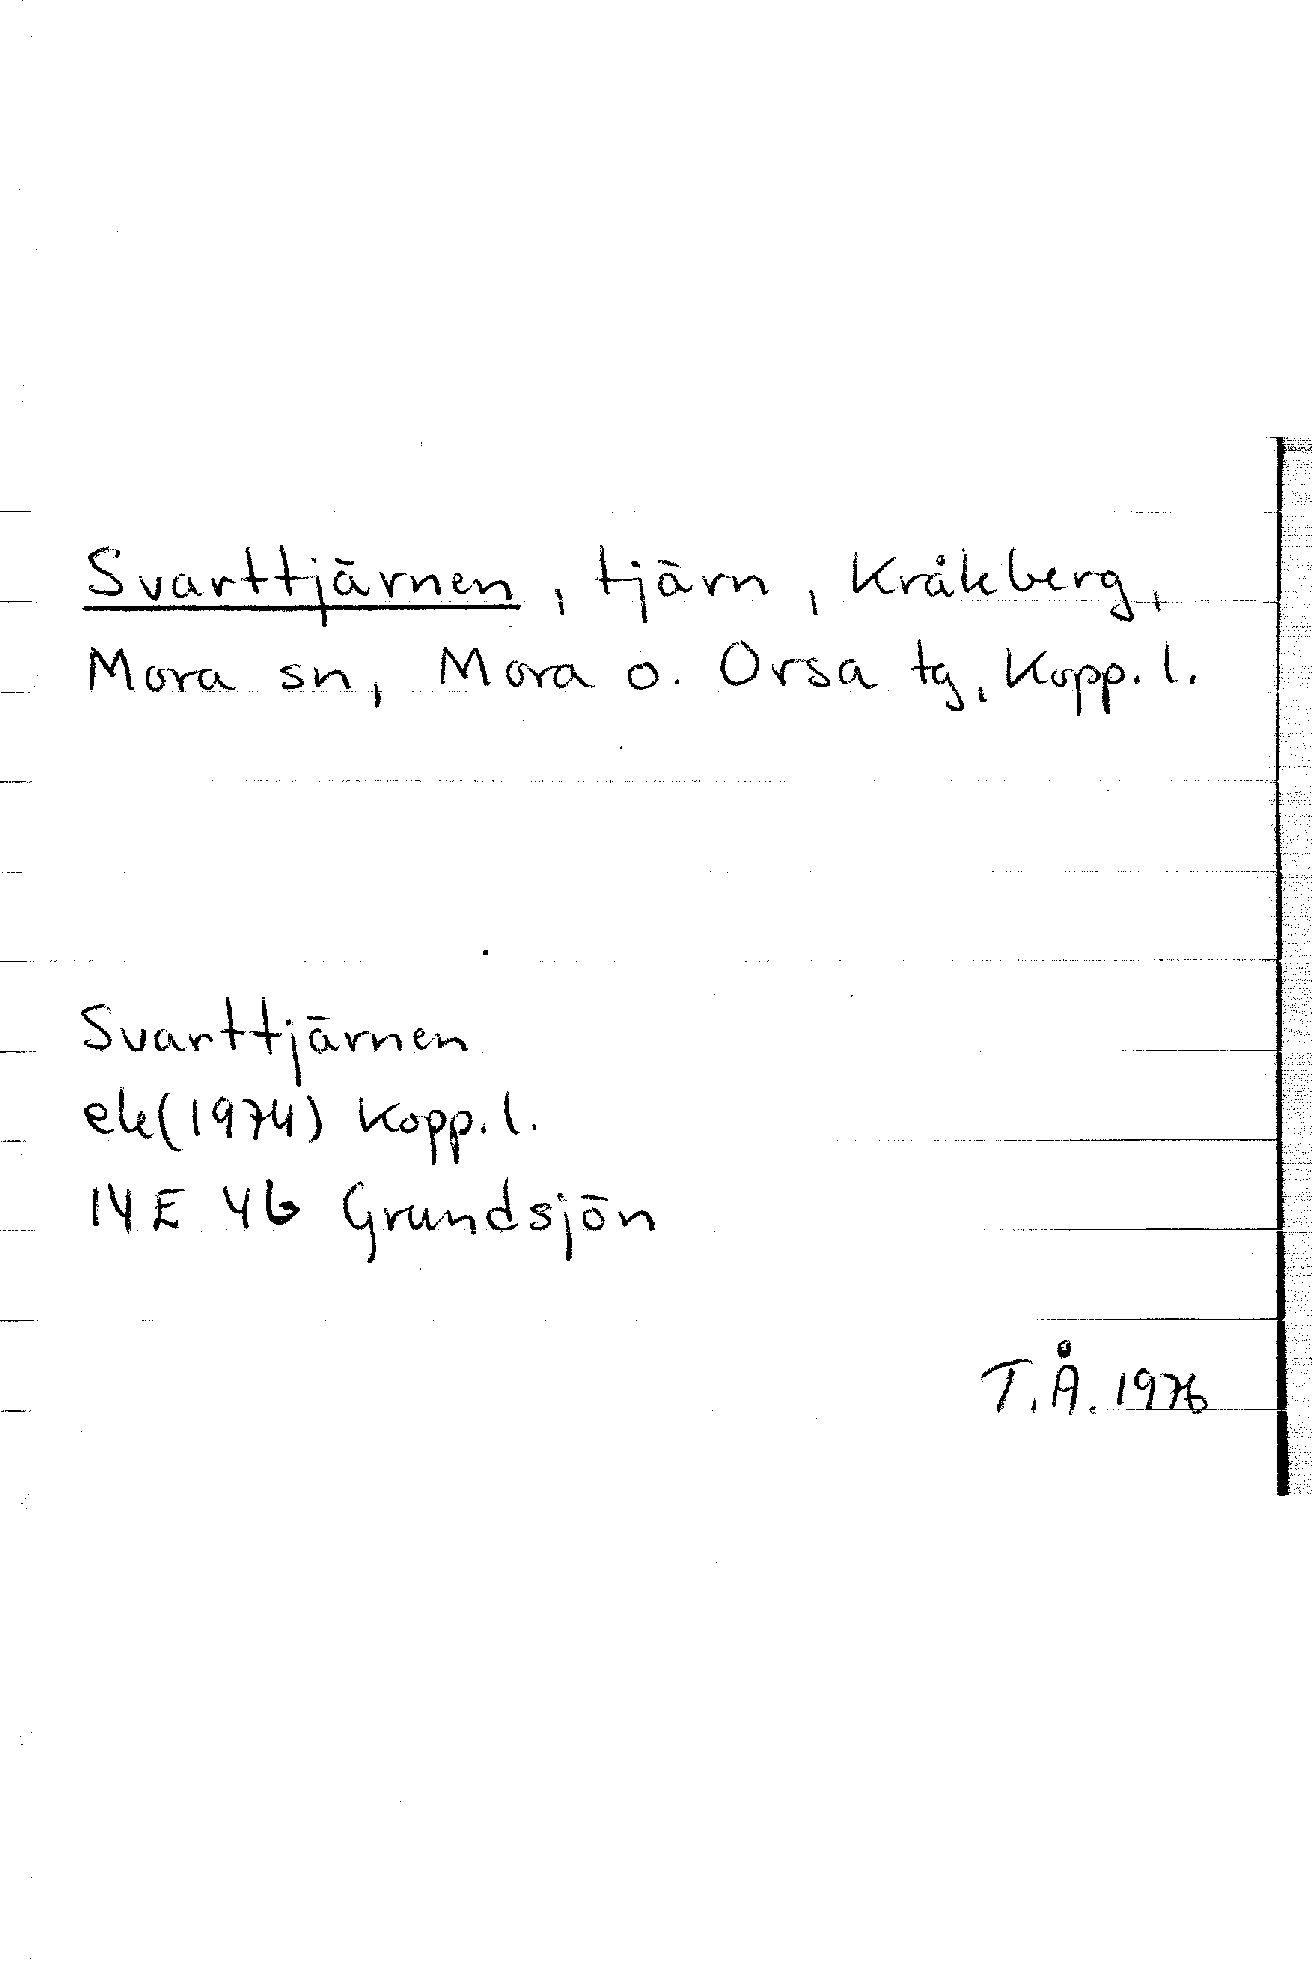 Svarttjärnen, tjärn, Kråkberg,
Mora sn, Mora o. Orsa tg, Kopp. l.
Svarttjärnen
ek(1974) Kopp. l.
14 E 4b Grundsjön
T.Å. 1976